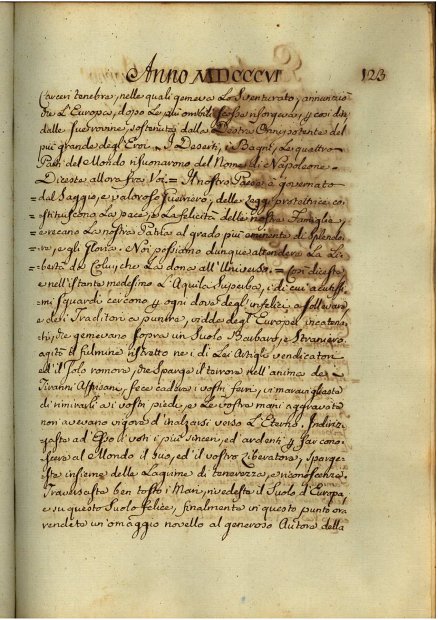 Anno MDCCCVI
123
Carceri tenebre, nelle quali gemeva Lo Sventurato, annunziò
che L'Europa, dopo Le più orribili scosse risorgeva, e così
dalle sue rovine, sostenuta dalla Destra Onnipotente del
più grande degl'Eroi. I Deserti, i Bagni, Le quattro
Parti del Mondo risuonarono del Nome di Napoleone.
Direste allora fra Voi = Il nostro Paese è governato
= dal Saggio, e valoroso Guerriero, delle Leggi protettrici co=
=stituiscono La pace, e La felicità delle nostre Famiglie,
= e recano La nostra Patria al grado più eminente di splendo=
=re, e gli Gloria. Noi possiamo dunque attendere La Li=
=bertà da Colui, che La dona all'Universo. = Così diceste,
e nell'istante medesimo L'Aquila Superba, i di cui acutissi=
mi sguardi cercono ogni dove degl'infelici a sollevare,
e dei Traditori a punire, vidde degl'Europei incatena=
ti, che gemevano sopra un Suolo Barbaro, e Straniero,
agitò il fulmine ristretto nei di Lei Artigli vendicatori
ed il solo romore, che sparge il terrore nell'anima de
Tiranni Affricani, fece cadere i vostri ferri, vi maravigliaste
di rimirarli a i vostri piedi, e Le vostre mani aggravate
non avevano vigora d'inalzarsi verso L'Eterno. Indiriz=
zaste ad Esso i voti i più sinceri, ed ardenti far cono=
scere al Mondo il Suo, ed il vostro Liberatore, sparge=
ste insieme delle Lagrime di tenerezza, e riconoscenza.
Traversaste ben tosto i Mari, rivedeste il Suolo di Europa,
e su questo Suolo felice, finalmente in questo punto ora
rendete un'omaggio novello al generoso Autore della